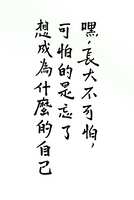 嘿，長大不可怕，
可怕的是忘了
想成為什麼的自己